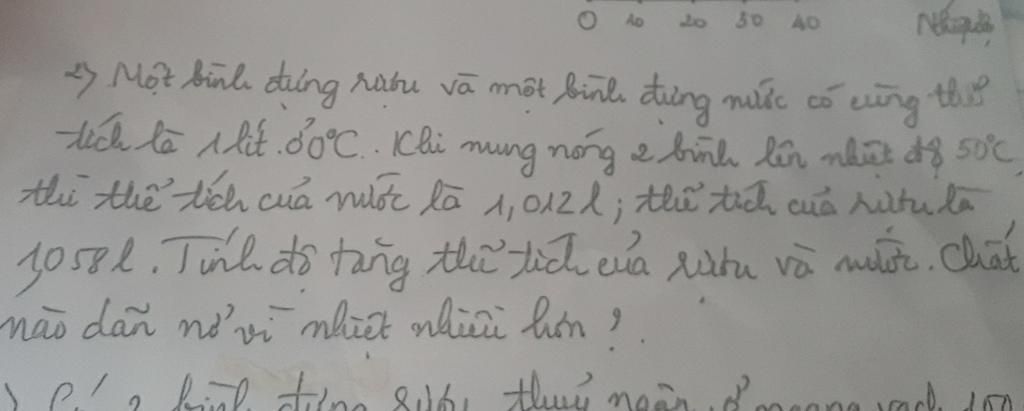 0 10 20 30 40 Nhiệt độ
2) Một bình đựng rượu và một bình đựng nước có cùng thể
tích là 1 lít. ở 0°C. Khi nung nóng 2 bình lên nhiệt độ 50°C
thì thể tích của nước là 1,012l; thể tích của rượu là
1,058l. Tính độ tăng thể tích của rượu và nước. Chất
nào dãn nở vì nhiệt nhiều hơn?
) Có 2 bình đựng rượu, thuỷ ngân, ở ngang vạch 100